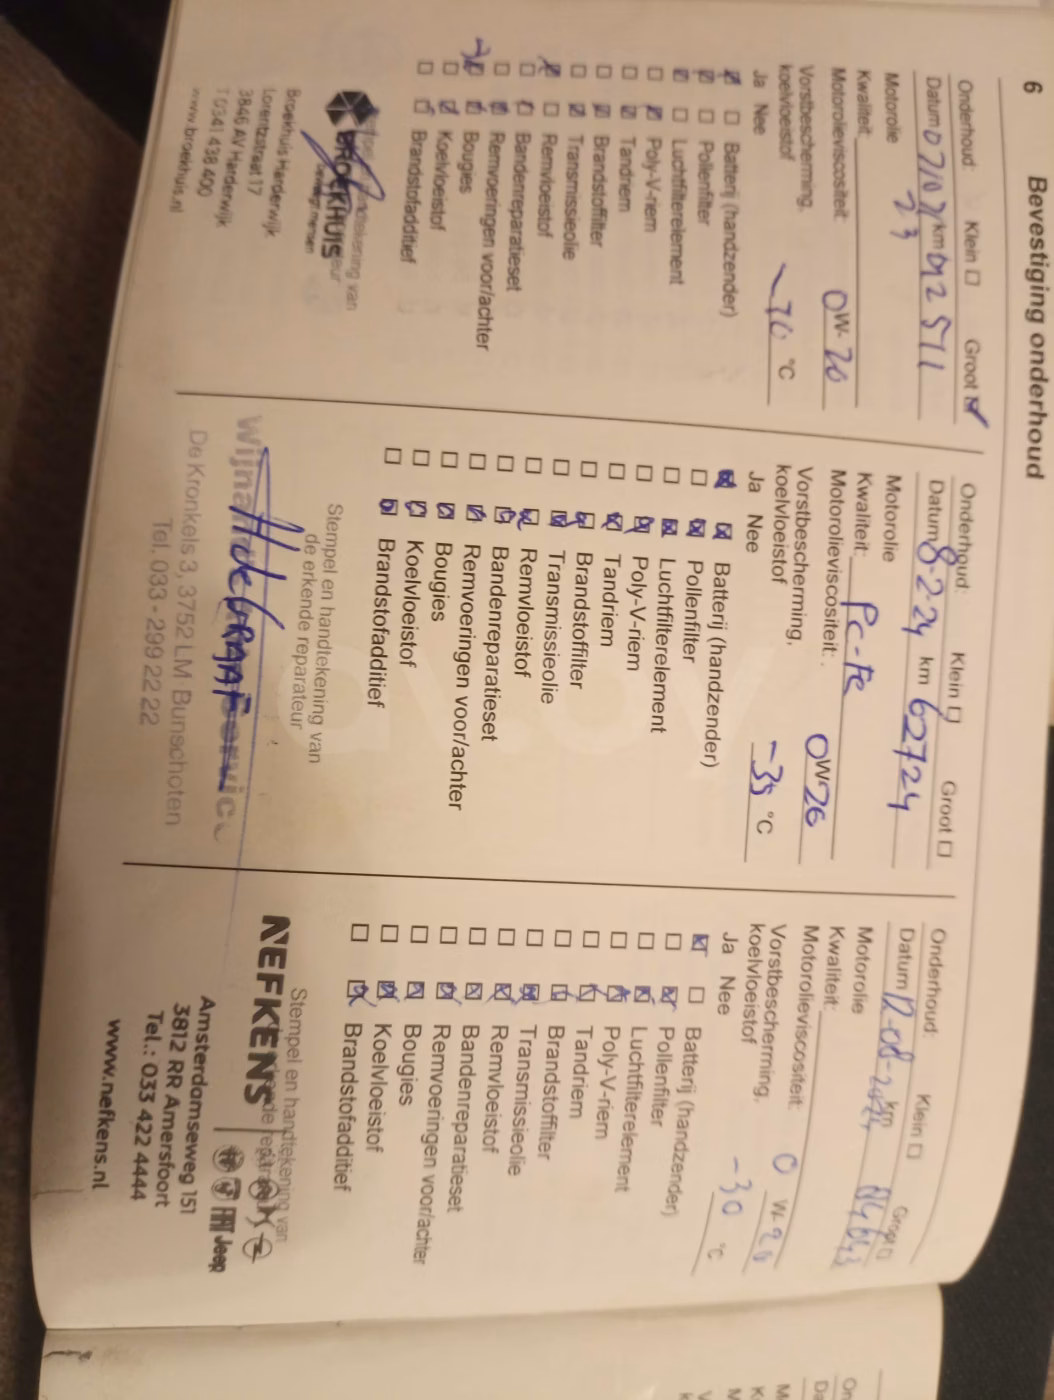 6
Bevestiging onderhoud
Onderhoud: Klein Groot
Datum 07/07/23 km 042511
Motorolie
Kwaliteit:
Motorolieviscositeit: 0W-20
Vorstbescherming,
koelvloeistof °C
Ja Nee
Batterij (handzender)
Pollenfilter
Luchtfilterelement
Poly-V-riem
Tandriem
Brandstoffilter
Transmissieolie
Remvloeistof
Bandenreparatieset
Remvoeringen voor/achter
Bougies
Koelvloeistof
Brandstofadditief
BROEKHUIS
Broekhuis Harderwijk
Lorentzstraat 17
3846 AV Harderwijk
T 0341 438 400
www.broekhuis.nl
Onderhoud: Klein Groot
Datum 8-2-24 km 62724
Motorolie
Kwaliteit:
Motorolieviscositeit:
Vorstbescherming,
koelvloeistof -35 °C
Ja Nee
Batterij (handzender)
Pollenfilter
Luchtfilterelement
Poly-V-riem
Tandriem
Brandstoffilter
Transmissieolie
Remvloeistof
Bandenreparatieset
Remvoeringen voor/achter
Bougies
Koelvloeistof
Brandstofadditief
Stempel en handtekening van
de erkende reparateur
De Kronkels 3, 3752 LM Bunschoten
Tel. 033 - 299 22 22
Onderhoud: Klein Groot
Datum 12-08-2024 km
Motorolie
Kwaliteit:
Motorolieviscositeit: 0 W-20
Vorstbescherming,
koelvloeistof -30 °C
Ja Nee
Batterij (handzender)
Pollenfilter
Luchtfilterelement
Poly-V-riem
Tandriem
Brandstoffilter
Transmissieolie
Remvloeistof
Bandenreparatieset
Remvoeringen voor/achter
Bougies
Koelvloeistof
Brandstofadditief
Stempel en handtekening van
NEFKENS
FIAT Jeep
Amsterdamseweg 151
3812 RR Amersfoort
Tel.: 033 422 4444
www.nefkens.nl